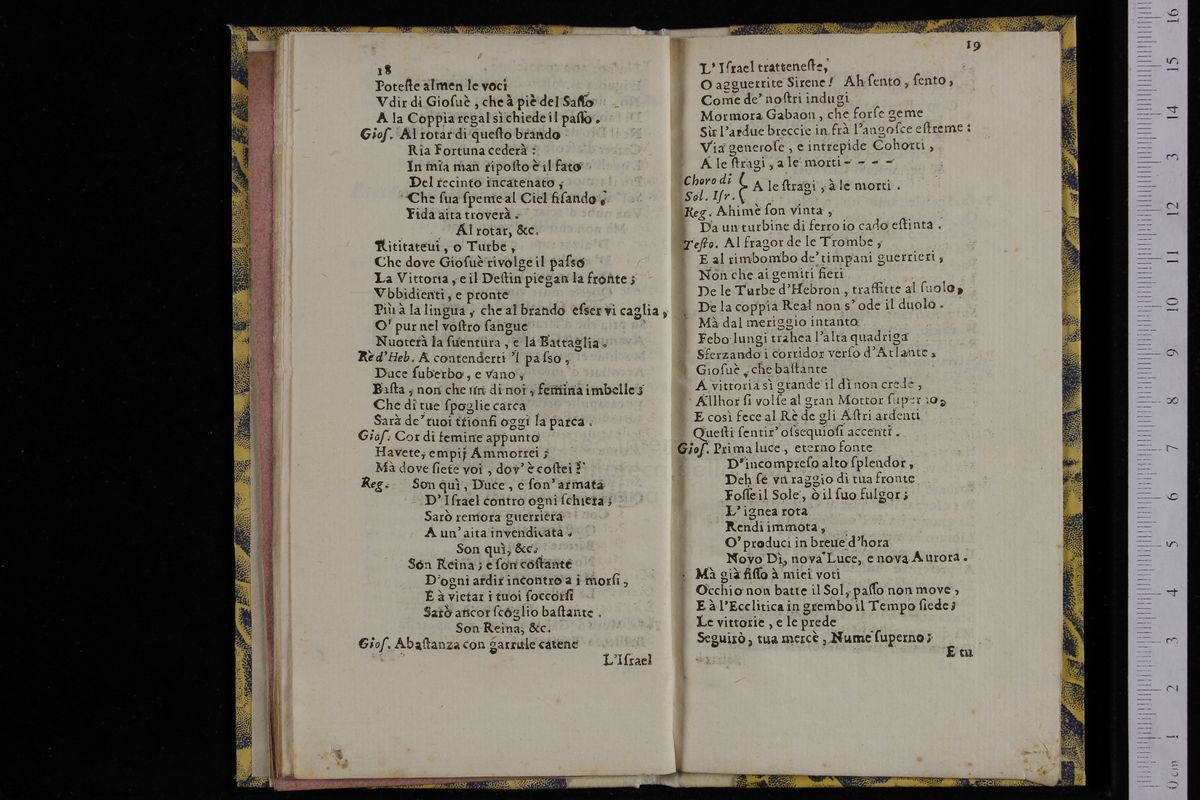 18
Poteſte almen le voci
Vdir di Gioſuè , che à piè del Saſſo
A la Coppia regal sì chiede il paſſo .
Gioſ. Al rotar di queſto brando
Ria Fortuna cederà :
In mia man ripoſto è il fato
Del recinto incatenato ,
Che ſua ſpeme al Ciel fiſando ,
Fida aita troverà .
Al rotar, &c.
Rititateui , o Turbe ,
Che dove Gioſuè rivolge il paſso
La Vittoria , e il Deſtin piegan la fronte ;
Vbbidienti , e pronte
Più à la lingua , che al brando eſser vi caglia ,
O' pur nel voſtro ſangue
Nuoterà la ſuentura , e la Battaglia .
Rè d'Heb. A contenderti 'l paſso ,
Duce ſuberbo , e vano ,
Baſta , non che un di noi , femina imbelle ;
Che di tue ſpoglie carca
Sarà de' tuoi trionfi oggi la parca .
Gioſ. Cor di femine appunto
Havete, empij Ammorrei ;
Mà dove ſiete voi , dov' è coſtei ?
Reg. Son quì , Duce , e ſon' armata
D' Iſrael contro ogni ſchiera ;
Sarò remora guerriera
A un' aita invendicata .
Son quì, &c.
Son Reina ; e ſon coſtante
D'ogni ardir incontro a i morſi ,
E à vietar i tuoi ſoccorſi
Sarò ancor ſcoglio baſtante .
Son Reina, &c.
Gioſ. Abaſtanza con garrule catene
L'Iſrael
19
L' Iſrael tratteneſte,
O agguerrite Sirene ! Ah ſento , ſento ,
Come de' noſtri indugi
Mormora Gabaon , che forſe geme
Sùr l'ardue breccie in frà l'angoſce eſtreme :
Via generoſe , e intrepide Cohorti ,
A le ſtragi , a le morti - - - -
Choro di
Sol. Iſr. { A le ſtragi , à le morti .
Reg. Ahimè ſon vinta ,
Da un turbine di ferro io cado eſtinta .
Teſto. Al fragor de le Trombe ,
E al rimbombo de' timpani guerrieri ,
Non che ai gemiti fieri
De le Turbe d'Hebron , traffitte al ſuolo ,
De la coppia Real non s' ode il duolo .
Mà dal meriggio intanto
Febo lungi trahea l'alta quadriga
Sferzando i corridor verſo d'Atlante ,
Gioſuè , che baſtante
A vittoria sì grande il dì non crede ,
Allhor ſi volſe al gran Mottor ſuperno ,
E così fece al Rè de gli Aſtri ardenti
Queſti ſentir' oſsequioſi accenti .
Gioſ. Prima luce , eterno fonte
D' incompreſo alto ſplendor ,
Deh ſe vn raggio di tua fronte
Foſſe il Sole , ò il ſuo fulgor ;
L' ignea rota
Rendi immota ,
O' produci in breue d'hora
Novo Dì, nova Luce, e nova Aurora .
Mà già fiſſo à miei voti
Occhio non batte il Sol, paſſo non move ,
E à l'Ecclitica in grembo il Tempo ſiede ;
Le vittorie , e le prede
Seguirò , tua mercè , Nume ſuperno ;
E tu
0 cm 1 2 3 4 5 6 7 8 9 10 11 12 13 14 15 16